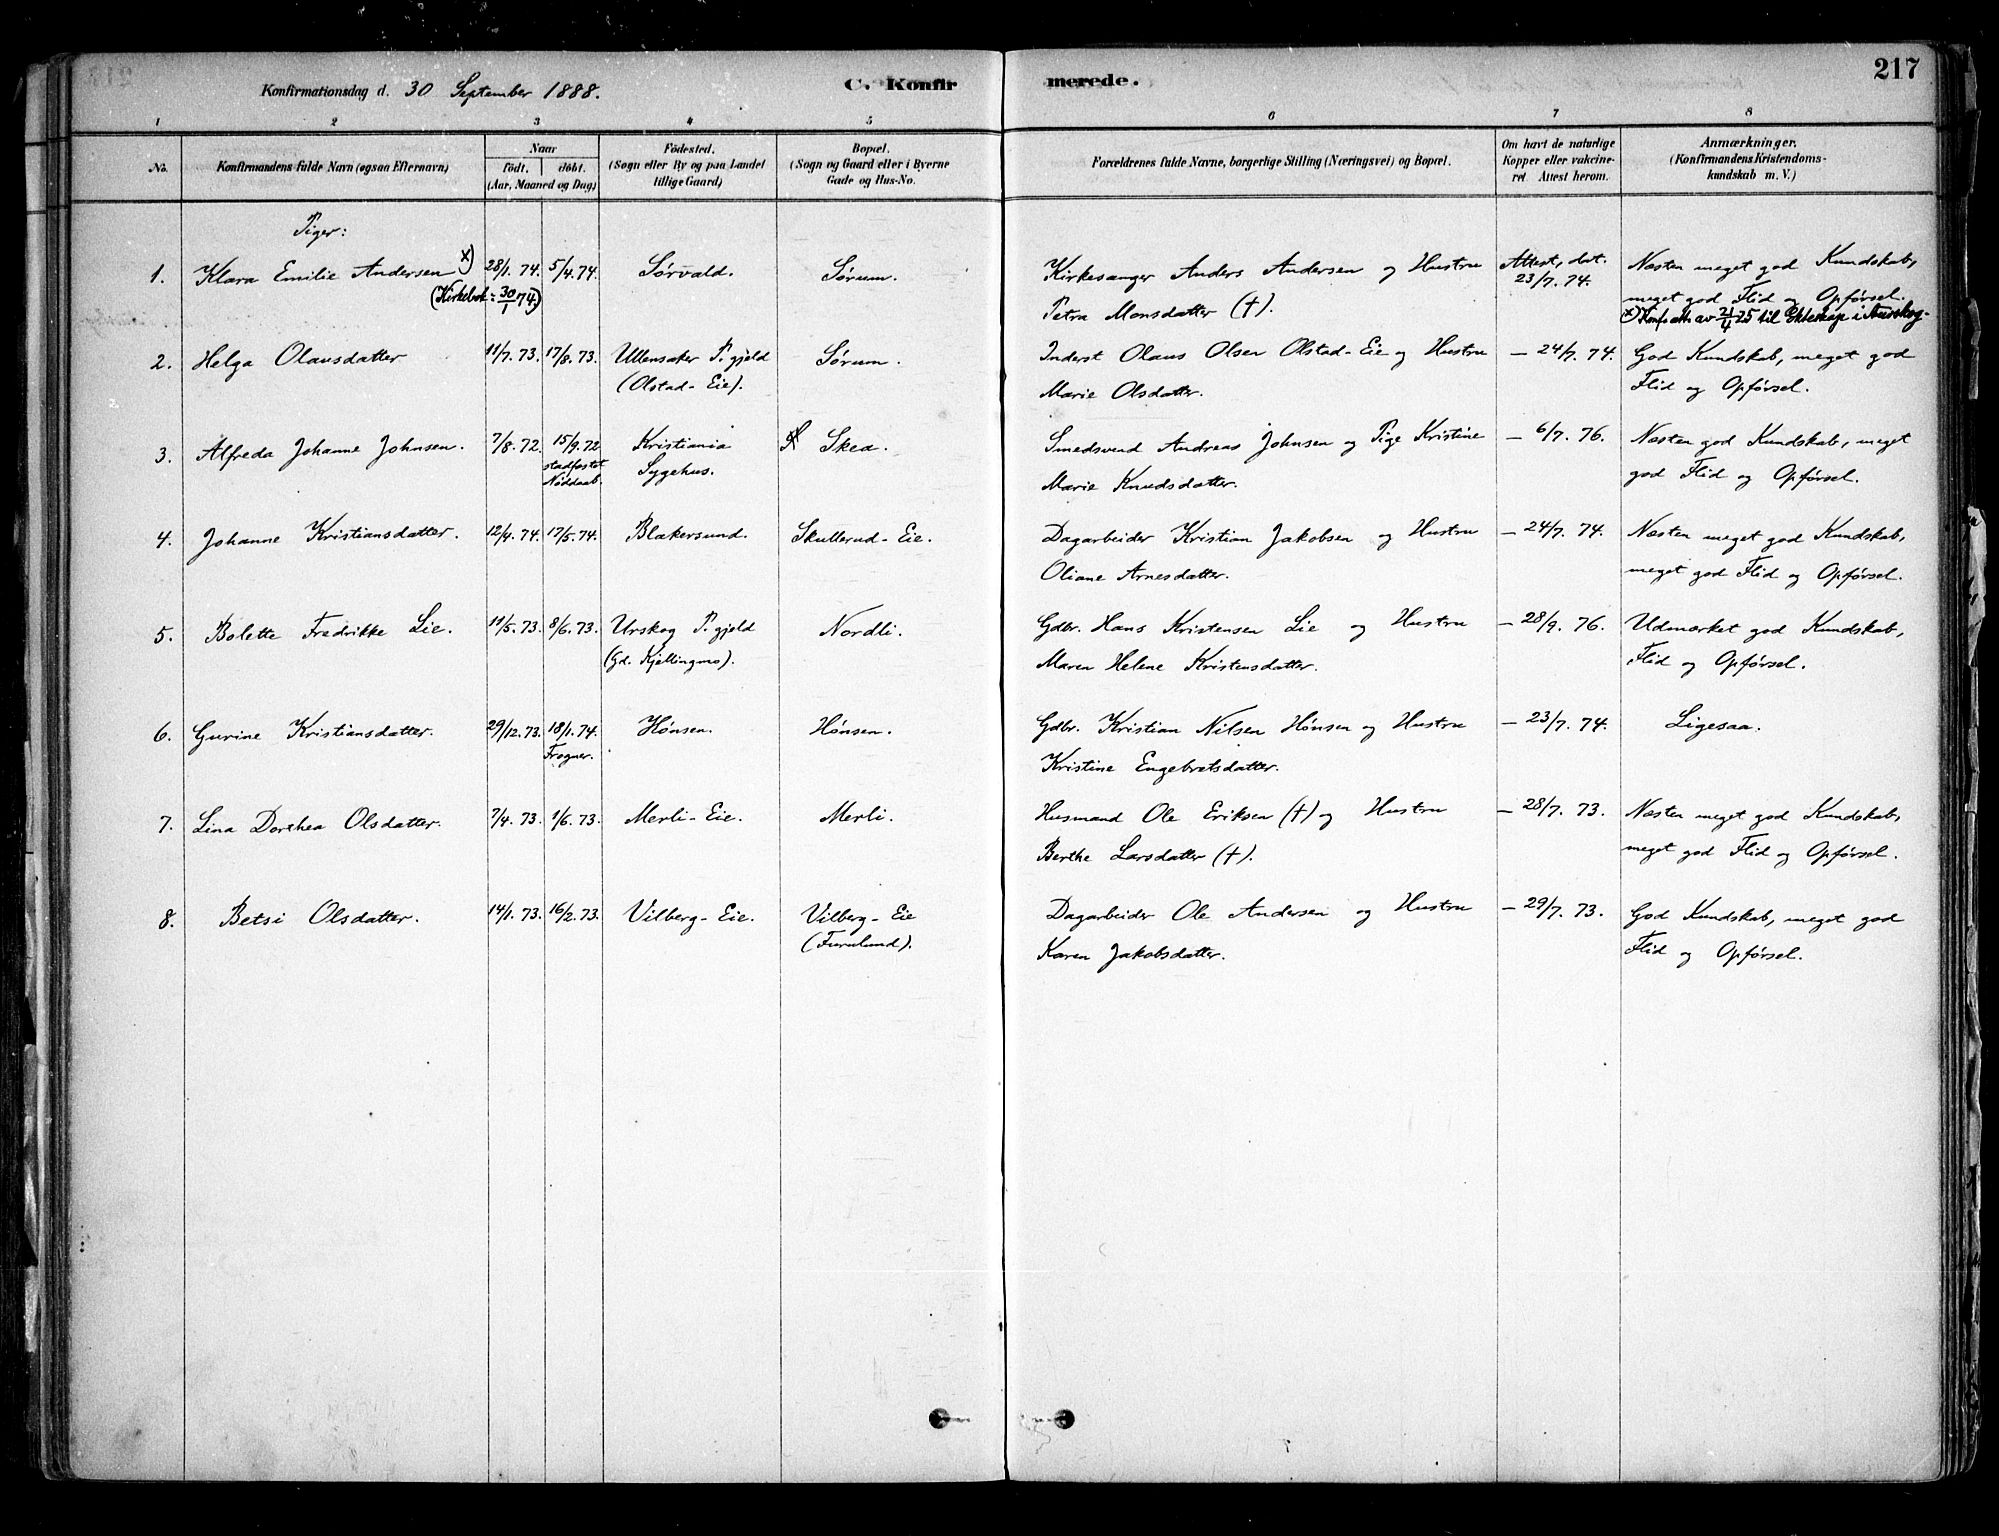 Konfirmationsdag d. 30 September 1888. C. Konfirmerede. 217
1 2 3 4 5 6 7 8
No. Konfirmandens fulde Navn (ogsaa Efternavn) Naar födt. döbt. (Aar, Maaned og Dag) Födested. (Sogn eller By og paa Landet tillige Gaard) Bopæl. (Sogn og Gaard eller i Byerne Gade og Hus-No. Forældrenes fulde Navne, borgerlige Stilling (Næringsvei) og Bopæl. Om havt de naturlige Kopper eller vakcineret Attest herom. Anmærkninger. (Konfirmandens Kristendomskundskab m. V.)
Piger:
1. Klara Emilie Andersen x) 28/1. 74. 5/4. 74. Sørvald. Sørum. Kirkesanger Anders Andersen og Hustru Attest, dat. Næsten meget god Kundskab,
(Kirkebok: 30/1 74) Petra Monsdatter (†). 23/7. 74. meget god Flid og Opførsel.
x) Konf.att. av 21/4 25 til Ekteskap i Aurskog
2. Helga Olausdatter 11/7. 73. 17/8. 73. Ullensaker P.gjeld Sørum. Inderst Olaus Olsen Olstad-Eie og Hustru — 24/7. 74. God Kundskab, meget god
(Olstad-Eie). Marie Olsdatter. Flid og Opførsel.
3. Alfreda Johanne Johnsen. 7/8. 72. 15/9. 72 Kristiania Skea. Smedsvend Andreas Johnsen og Pige Kristine — 6/7. 76. Næsten god Kundskab, meget
stadfæstet Sygehus. Marie Knudsdatter. god Flid og Opførsel.
Nøddaab.
4. Johanne Kristiansdatter. 12/4. 74. 17/5. 74. Blakersund. Skullerud-Eie. Dagarbeider Kristian Jakobsen og Hustru — 24/7. 74. Næsten meget god Kundskab,
Oliane Arnesdatter. meget god Flid og Opførsel.
5. Bolette Fredrikke Lie. 11/5. 73. 8/6. 73. Urskog P.gjeld Nordli. Gdbr. Hans Kristensen Lie og Hustru — 28/9. 76. Udmærket god Kundskab,
(Gd. Kjellingmo). Maren Helene Kristensdatter. Flid og Opførsel.
6. Gurine Kristiansdatter. 29/12. 73. 18/1. 74. Hønsen. Hønsen. Gdbr. Kristian Nilsen Hønsen og Hustru — 23/7. 74. Ligesaa.
Frogner. Kristine Engebretsdatter.
7. Lina Dorthea Olsdatter. 7/4. 73. 1/6. 73. Merli-Eie. Merli. Husmand Ole Eriksen (†) og Hustru — 28/7. 73. Næsten meget god Kundskab,
Berthe Larsdatter (†). meget god Flid og Opførsel.
8. Betsi Olsdatter. 14/1. 73. 16/2. 73. Vilberg-Eie. Vilberg-Eie Dagarbeider Ole Andersen og Hustru — 29/7. 73. God Kundskab, meget god
(Furulund). Karen Jakobsdatter. Flid og Opførsel.